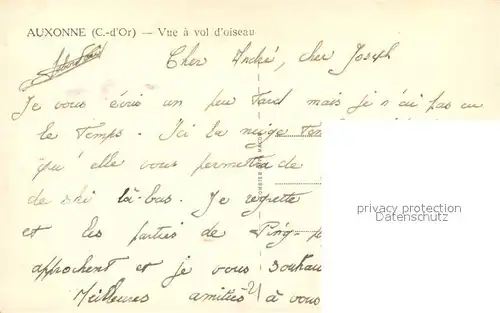 AUXONNE (C.-d'Or) — Vue à vol d'oiseau
Cher André, cher Joseph
Je vous écris un peu tard mais je n'ai pas eu
le temps. Ici la neige
qu'elle vous permettra de
de ski là-bas. Je regrette
et les parties de Ping-
approchent et je vous
Meilleures amitiés à vous
privacy protection
Datenschutz